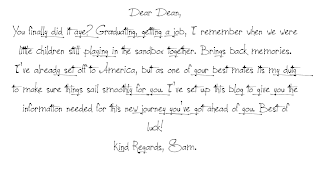 Dear Dean,
You finally did it aye? Graduating, getting a job, I remember when we were
little children still playing in the sandbox together. Brings back memories.
I've already set off to America, but as one of your best mates its my duty
to make sure things sail smoothly for you. I've set up this blog to give you the
information needed for this new journey you've got ahead of you. Best of
luck!
Kind Regards, Sam.